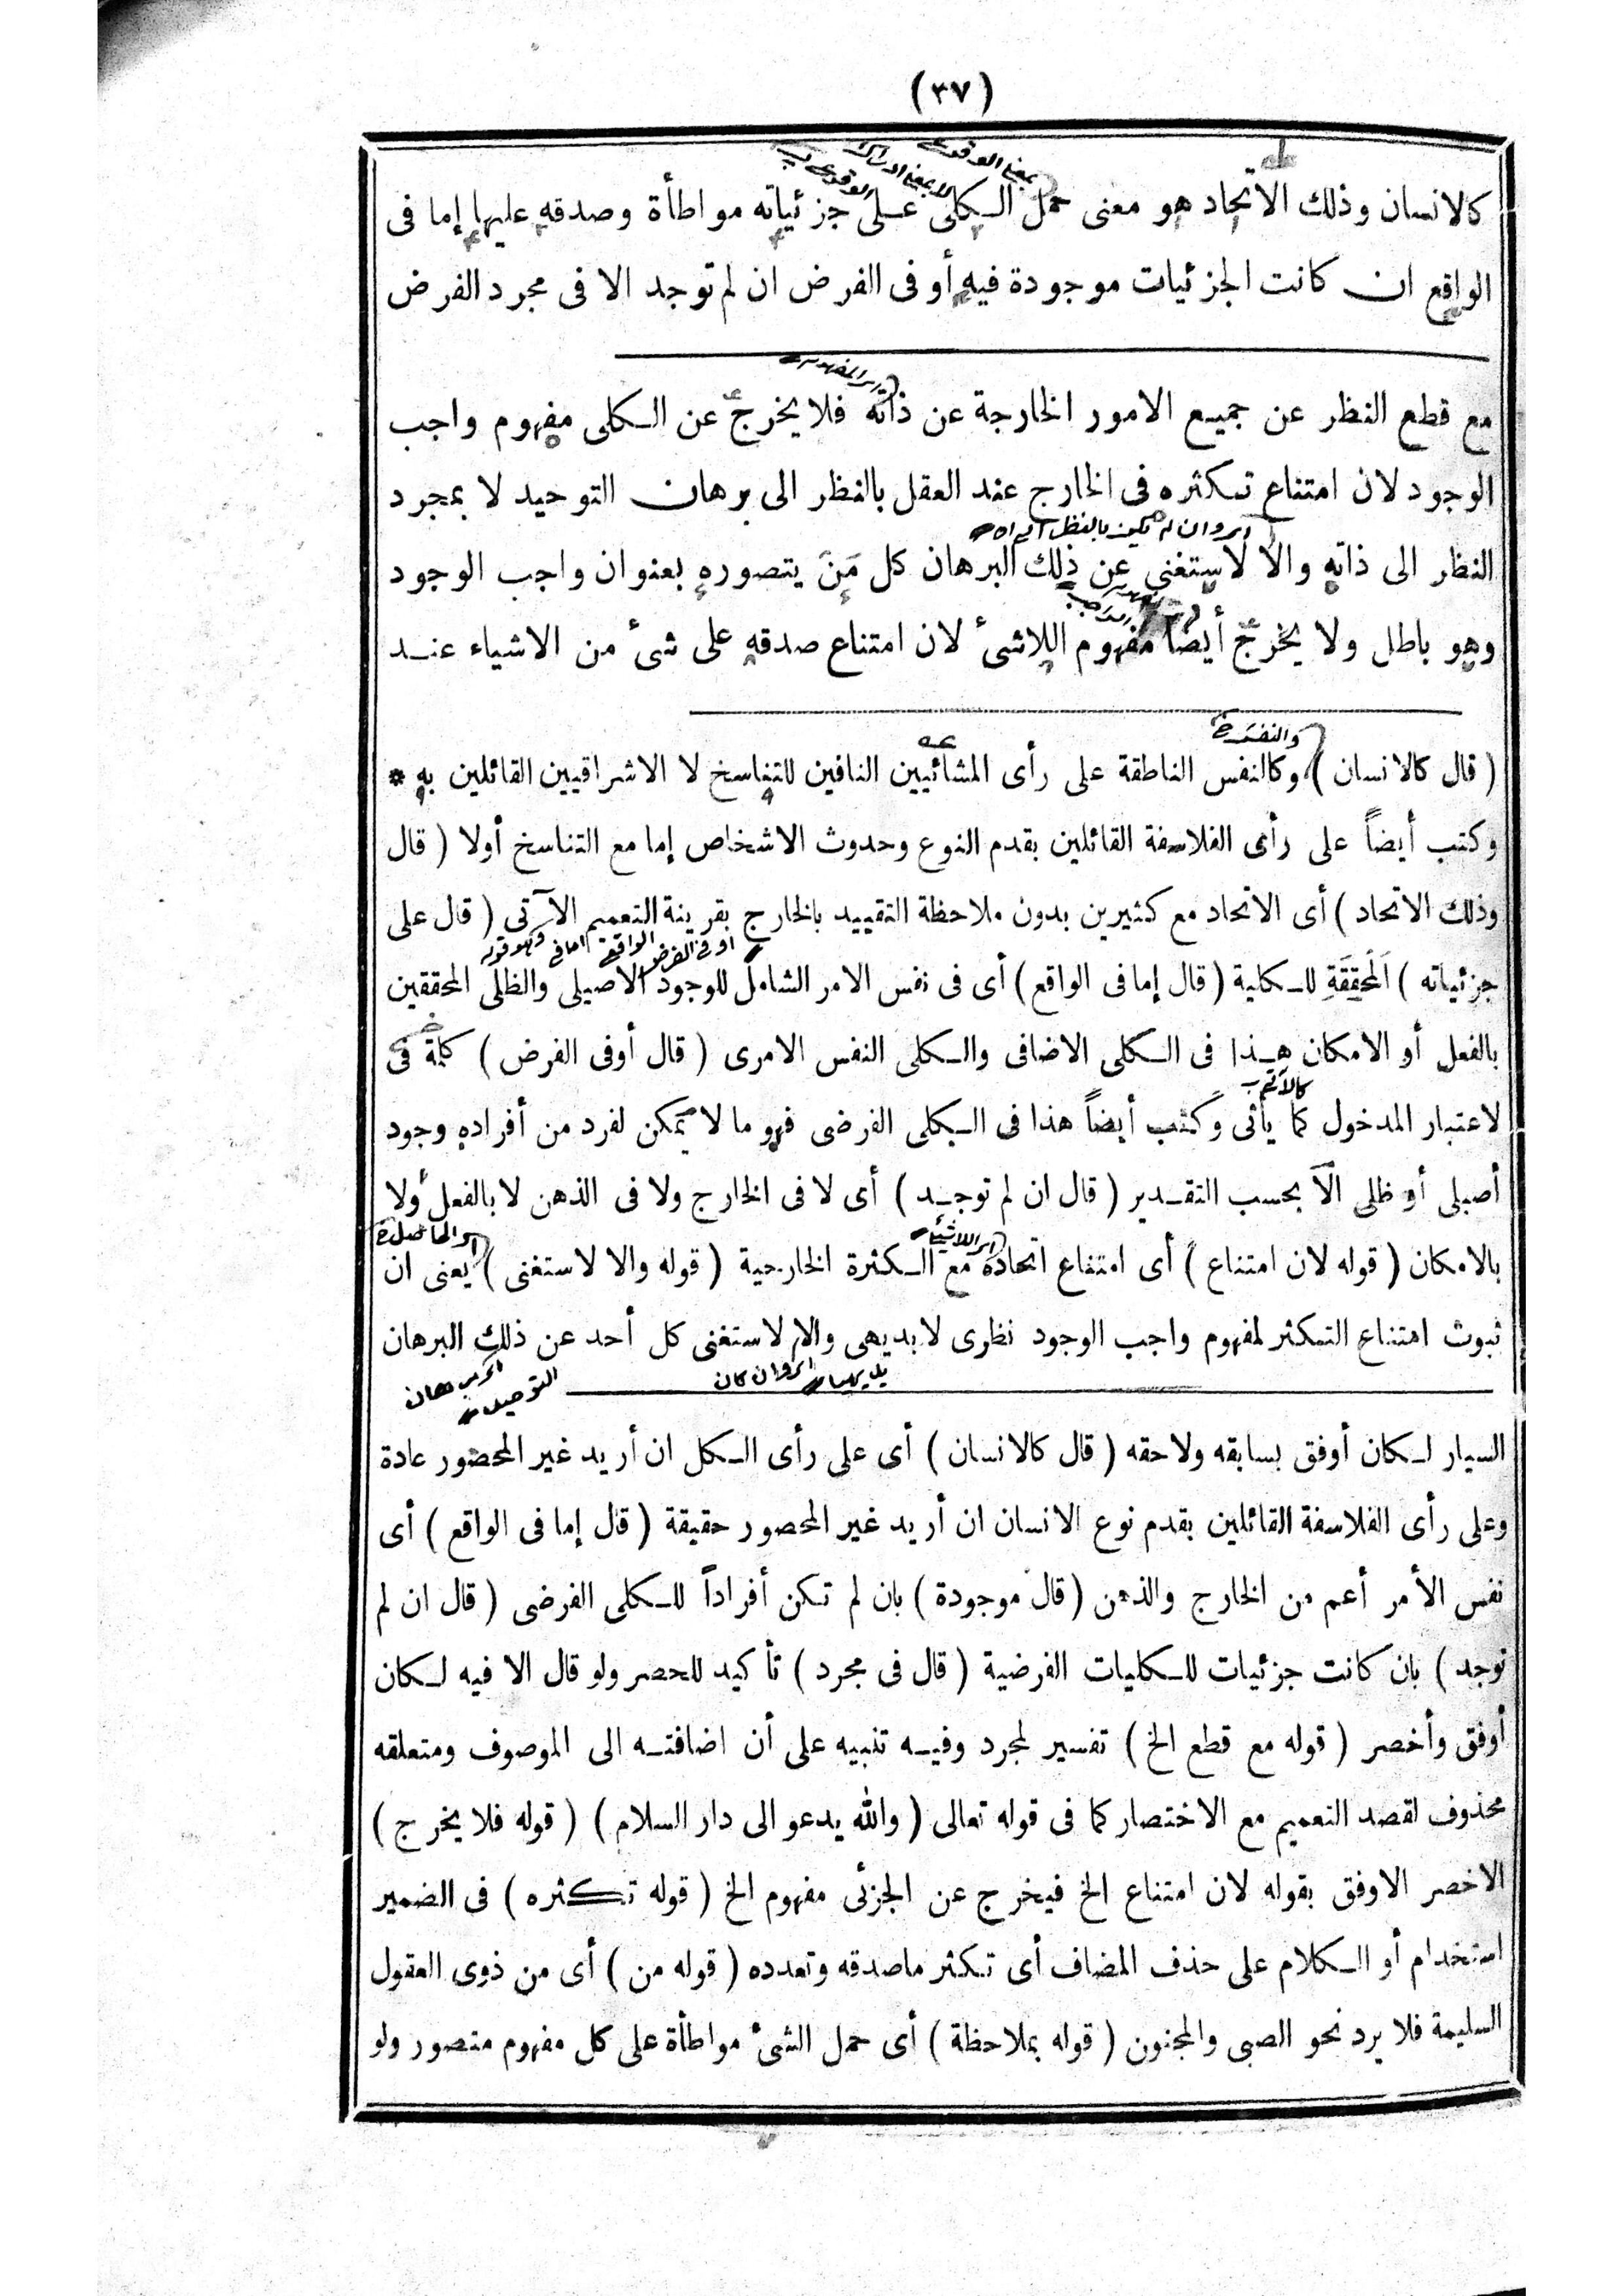 (٣٧)
كالانسان وذلك الاتحاد هو معنى حمل الكلى على جزئياته مواطأة وصدقه عليها إما فى
الواقع ان كانت الجزئيات موجودة فيه أو فى الفرض ان لم توجد الا فى مجرد الفرض
مع قطع النظر عن جميع الامور الخارجة عن ذاته فلا يخرج عن الكلى مفهوم واجب
الوجود لان امتناع تكثره فى الخارج عند العقل بالنظر الى برهان التوحيد لا بمجرد
اى وان لم يكن بالنظر الى اه
النظر الى ذاته والا لاستغنى عن ذلك البرهان كل مَنْ يتصوره بعنوان واجب الوجود
وهو باطل ولا يخرج أيضا مفهوم اللاشئ لان امتناع صدقه على شئ من الاشياء عند
والنفس
( قال كالانسان ) وكالنفس الناطقة على رأى المشائيين النافين للتناسخ لا الاشراقيين القائلين به *
وكتب أيضاً على رأى الفلاسفة القائلين بقدم النوع وحدوث الاشخاص إما مع التناسخ أولا ( قال
وذلك الاتحاد ) أى الاتحاد مع كثيرين بدون ملاحظة التقييد بالخارج بقرينة التعميم الآتى ( قال على
وهو قوله اما فى الواقع او فى الفرض
جزئياته ) اَلْمُحَقِّقَةِ للكلية ( قال إما فى الواقع ) أى فى نفس الامر الشامل للوجود الاصيلى والظلى المحققين
بالفعل أو الامكان هذا فى الكلى الاضافى والكلى النفس الامرى ( قال أوفى الفرض ) كلمة فى
لاعتبار المدخول كما يأتى وكتب أيضاً هذا فى الكلى الفرضى فهو ما لا يمكن لفرد من أفراده وجود
أصيلى أو ظلى الّا بحسب التقدير ( قال ان لم توجد ) أى لا فى الخارج ولا فى الذهن لا بالفعل ولا
اى اللاشئ
بالامكان ( قوله لان امتناع ) أى امتناع اتحاده مع الكثرة الخارجية ( قوله والا لاستغنى ) يعنى ان
ثبوت امتناع التكثر لمفهوم واجب الوجود نظرى لا بديهى والا لاستغنى كل أحد عن ذلك البرهان
اى وان كان بديهيا
اى برهان التوحيد
السيار لكان أوفق بسابقه ولاحقه ( قال كالانسان ) أى على رأى الكل ان أريد غير المحصور عادة
وعلى رأى الفلاسفة القائلين بقدم نوع الانسان ان أريد غير المحصور حقيقة ( قال إما فى الواقع ) أى
نفس الأمر أعم من الخارج والذهن ( قال موجودة ) بان لم تكن أفراداً للكلى الفرضى ( قال ان لم
توجد ) بان كانت جزئيات للكليات الفرضية ( قال فى مجرد ) تأكيد للحصر ولو قال الا فيه لكان
أوفق وأخصر ( قوله مع قطع الخ ) تفسير لمجرد وفيه تنبيه على أن اضافته الى الموصوف ومتعلقه
محذوف لقصد التعميم مع الاختصار كما فى قوله تعالى ( والله يدعو الى دار السلام ) ( قوله فلا يخرج )
الاخصر الاوفق بقوله لان امتناع الخ فيخرج عن الجزئى مفهوم الخ ( قوله تكثره ) فى الضمير
استخدام أو الكلام على حذف المضاف أى تكثر ماصدقه وتعدده ( قوله من ) أى من ذوى العقول
السليمة فلا يرد نحو الصبى والمجنون ( قوله بملاحظة ) أى حمل الشئ مواطأة على كل مفهوم متصور ولو